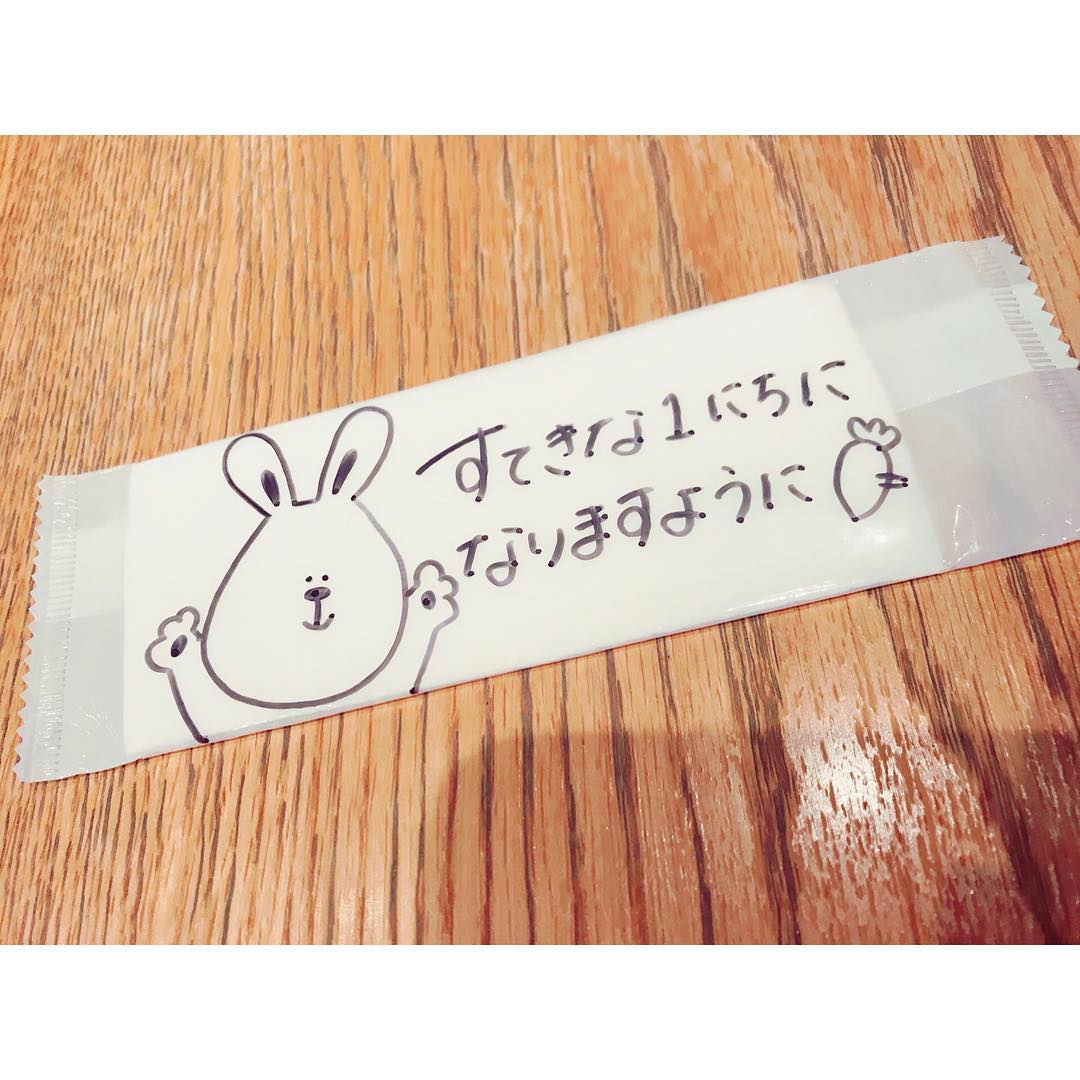 すてきな1にちに
なりますように